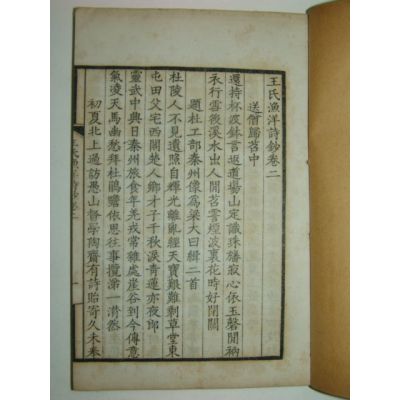 王氏漁洋詩鈔卷二
送僧歸苕中
還持杯渡鉢言返道場山定識珠寂心依玉磬閒衲
衣行雲後溪水苕霅煙波裏花時好閉關
題杜工部秦州像為梁大曰緝二首
杜陵人不見遺照自輝光離亂經天寶艱難剩草堂東
屯田父宅西閣楚人鄉才子千秋淚青蓮亦夜郎
靈武中興日秦州旅食年羌戎常雜處崖谷到今傳意
氣凌天馬幽愁拜杜鵑瞻依思往事攬涕一潸然
初夏北上過訪愚山督學陶齋有詩貽寄久未奉
王氏漁洋詩鈔卷二